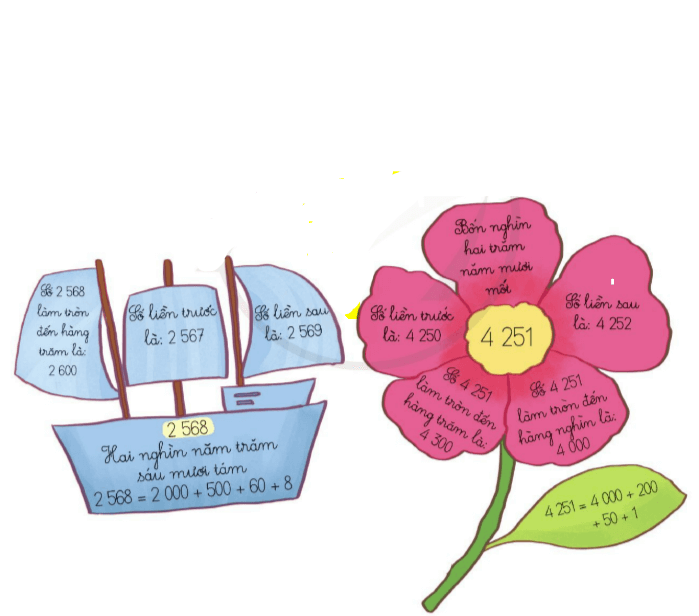 Số 2 568
làm tròn
đến hàng
trăm là:
2 600
Số liền trước
là: 2 567
Số liền sau
là: 2 569
2 568
Hai nghìn năm trăm
sáu mươi tám
2 568 = 2 000 + 500 + 60 + 8
Bốn nghìn
hai trăm
năm mươi
mốt
Số liền trước
là: 4 250
4 251
Số liền sau
là: 4 252
Số 4 251
làm tròn đến
hàng trăm là:
4 300
Số 4 251
làm tròn đến
hàng nghìn là:
4 000
4 251 = 4 000 + 200
+ 50 + 1